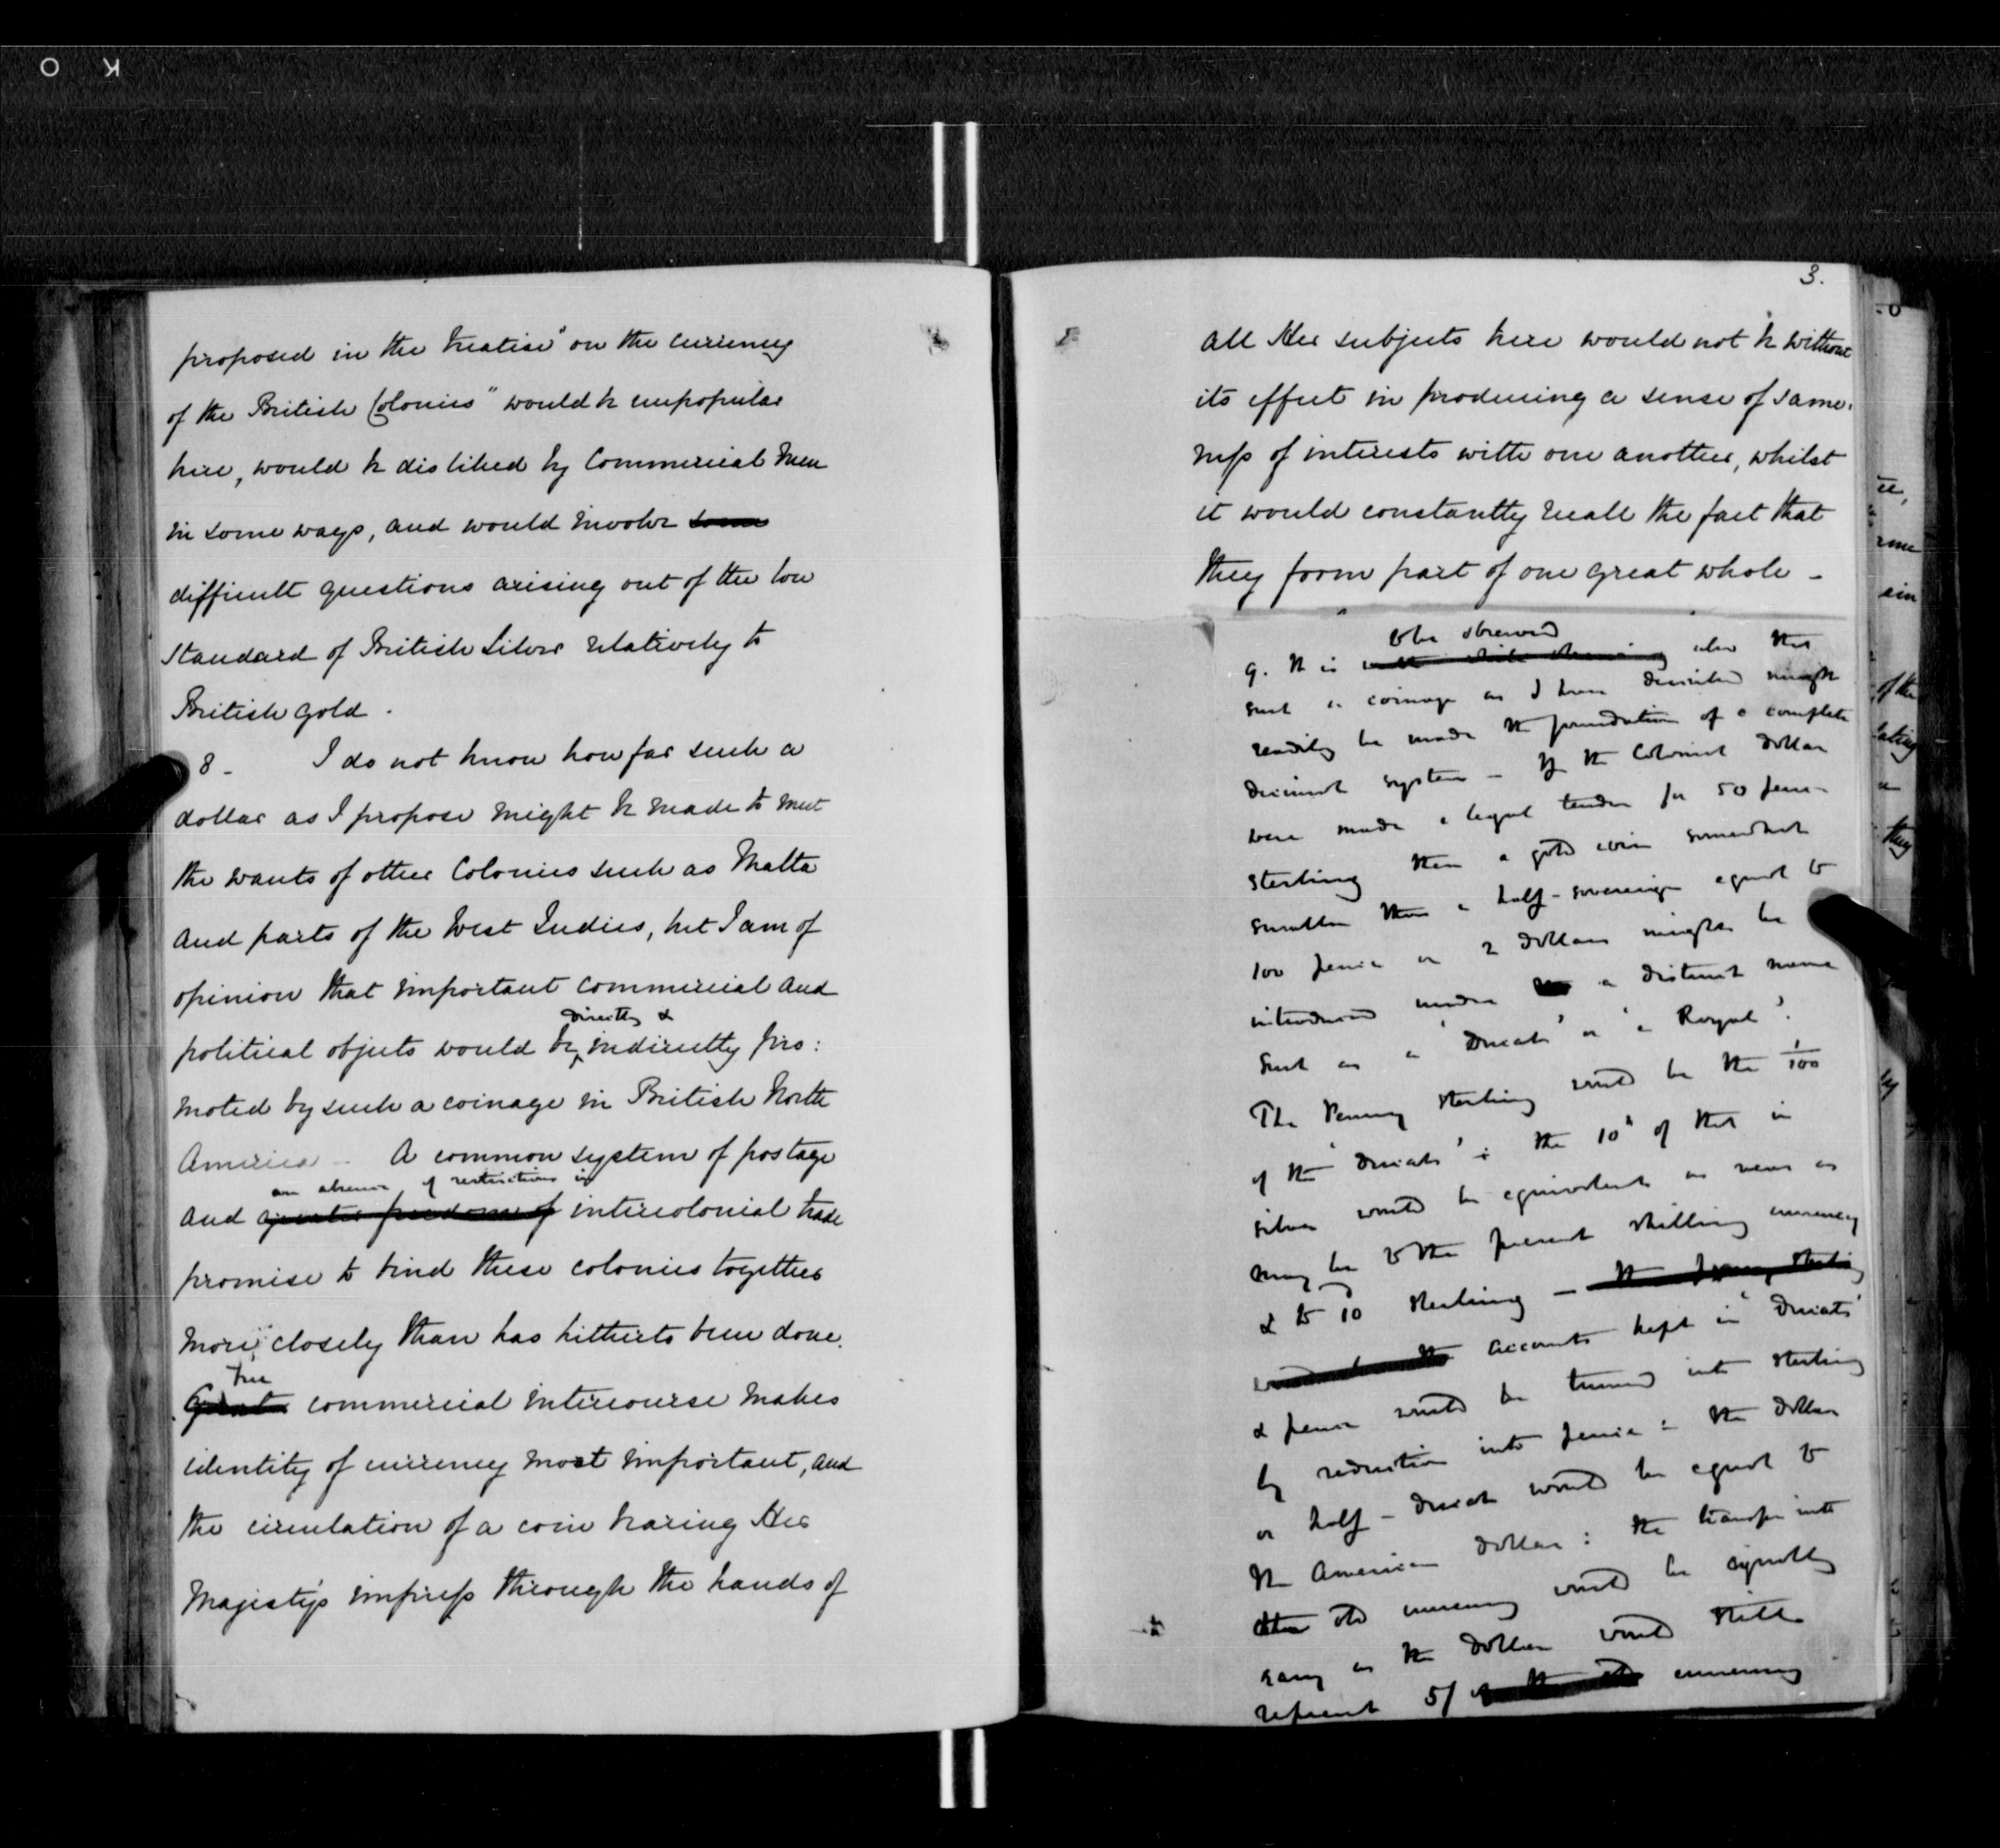 proposed in the treatise "on the currency
of the British Colonies" would be unpopular
here, would be disliked by Commercial Men
in some ways, and would involve some
difficult questions arising out of the low
standard of British Silver relatively to
British gold.
8 - I do not know how far such a
dollar as I propose might be made to meet
the wants of other Colonies such as Malta
and parts of the West Indies, but I am of
opinion that important commercial and
directly &
political objects would be indirectly pro:
moted by such a coinage in British North
America - A common system of postage
an absence of restrictions in
and greater freedom of intercolonial trade
promise to bind these colonies together
more closely than has hitherto been done.
Free
Great commercial intercourse makes
identity of currency most important, and
the circulation of a coin bearing Her
Majesty's impress through the hands of
3.
all Her subjects here would not be without
its effect in producing a sense of same-
ness of interests with one another, whilst
it would constantly recall the fact that
they form part of one great whole -
to be observed
9. It is also that
such a coinage as I have described might
readily be made the foundation of a complete
decimal system - If the Colonial dollar
were made a legal tender for 50 pence
sterling then a gold coin somewhat
smaller than a half-sovereign equal to
100 pence or 2 dollars might be
introduced under a distinct name
such as a 'Ducat' or 'a Royal'.
The Penny sterling would be the 1/100
of the 'Ducat': the 10th of that in
silver would be equivalent as near as
may be to the present shilling currency
& to 10 sterling - the penny sterling
accounts kept in 'Ducats'
& pence would be turned into sterling
by reduction into pence: the dollar
or half-ducat would be equal to
the American dollar: the transfer into
the old currency would be equally
easy as the dollar would still
represent 5/ of the old currency